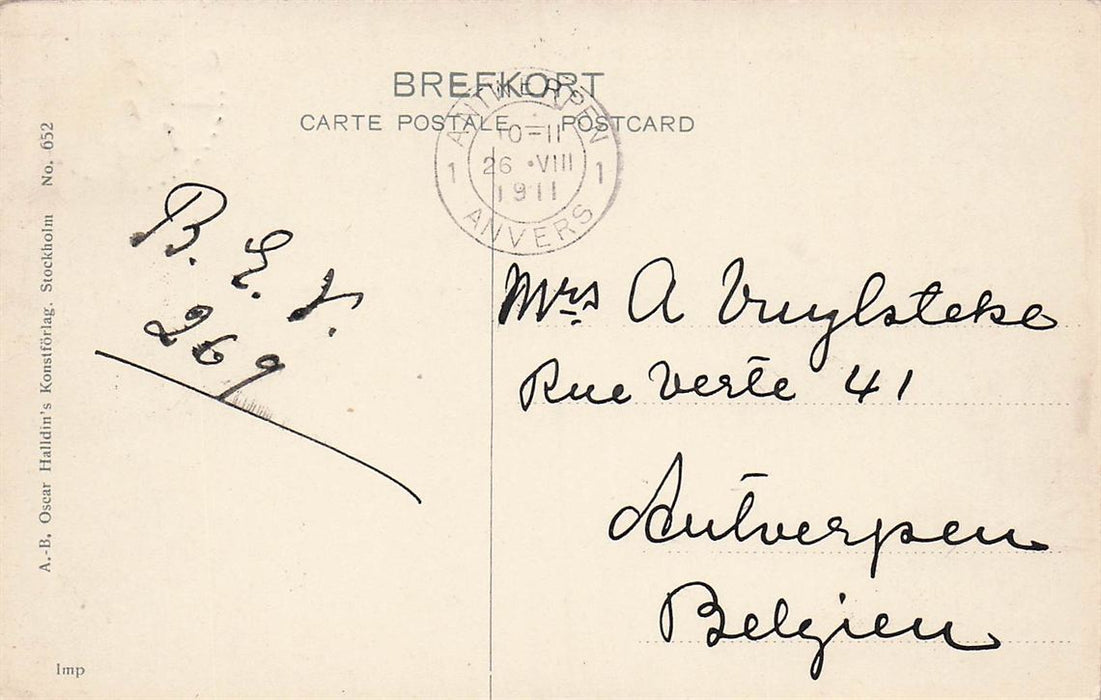 BREFKORT
CARTE POSTALE POSTCARD
ANTWERPEN
10-11
1 26 VIII 1
1911
ANVERS
A.-B. Oscar Halldin's Konstförlag. Stockholm No. 652
B. E. V.
269
Mrs A Vuylsteke
Rue Verte 41
Antverpen
Belgien
Imp